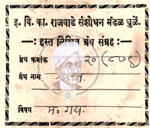 इ. वि. का. राजवाडे संशोधन मंडळ धुळें.
हस्त लिखित ग्रंथ संग्रह
ग्रंथ क्रमांक
ग्रंथ नाम
विषय म. गद्य.